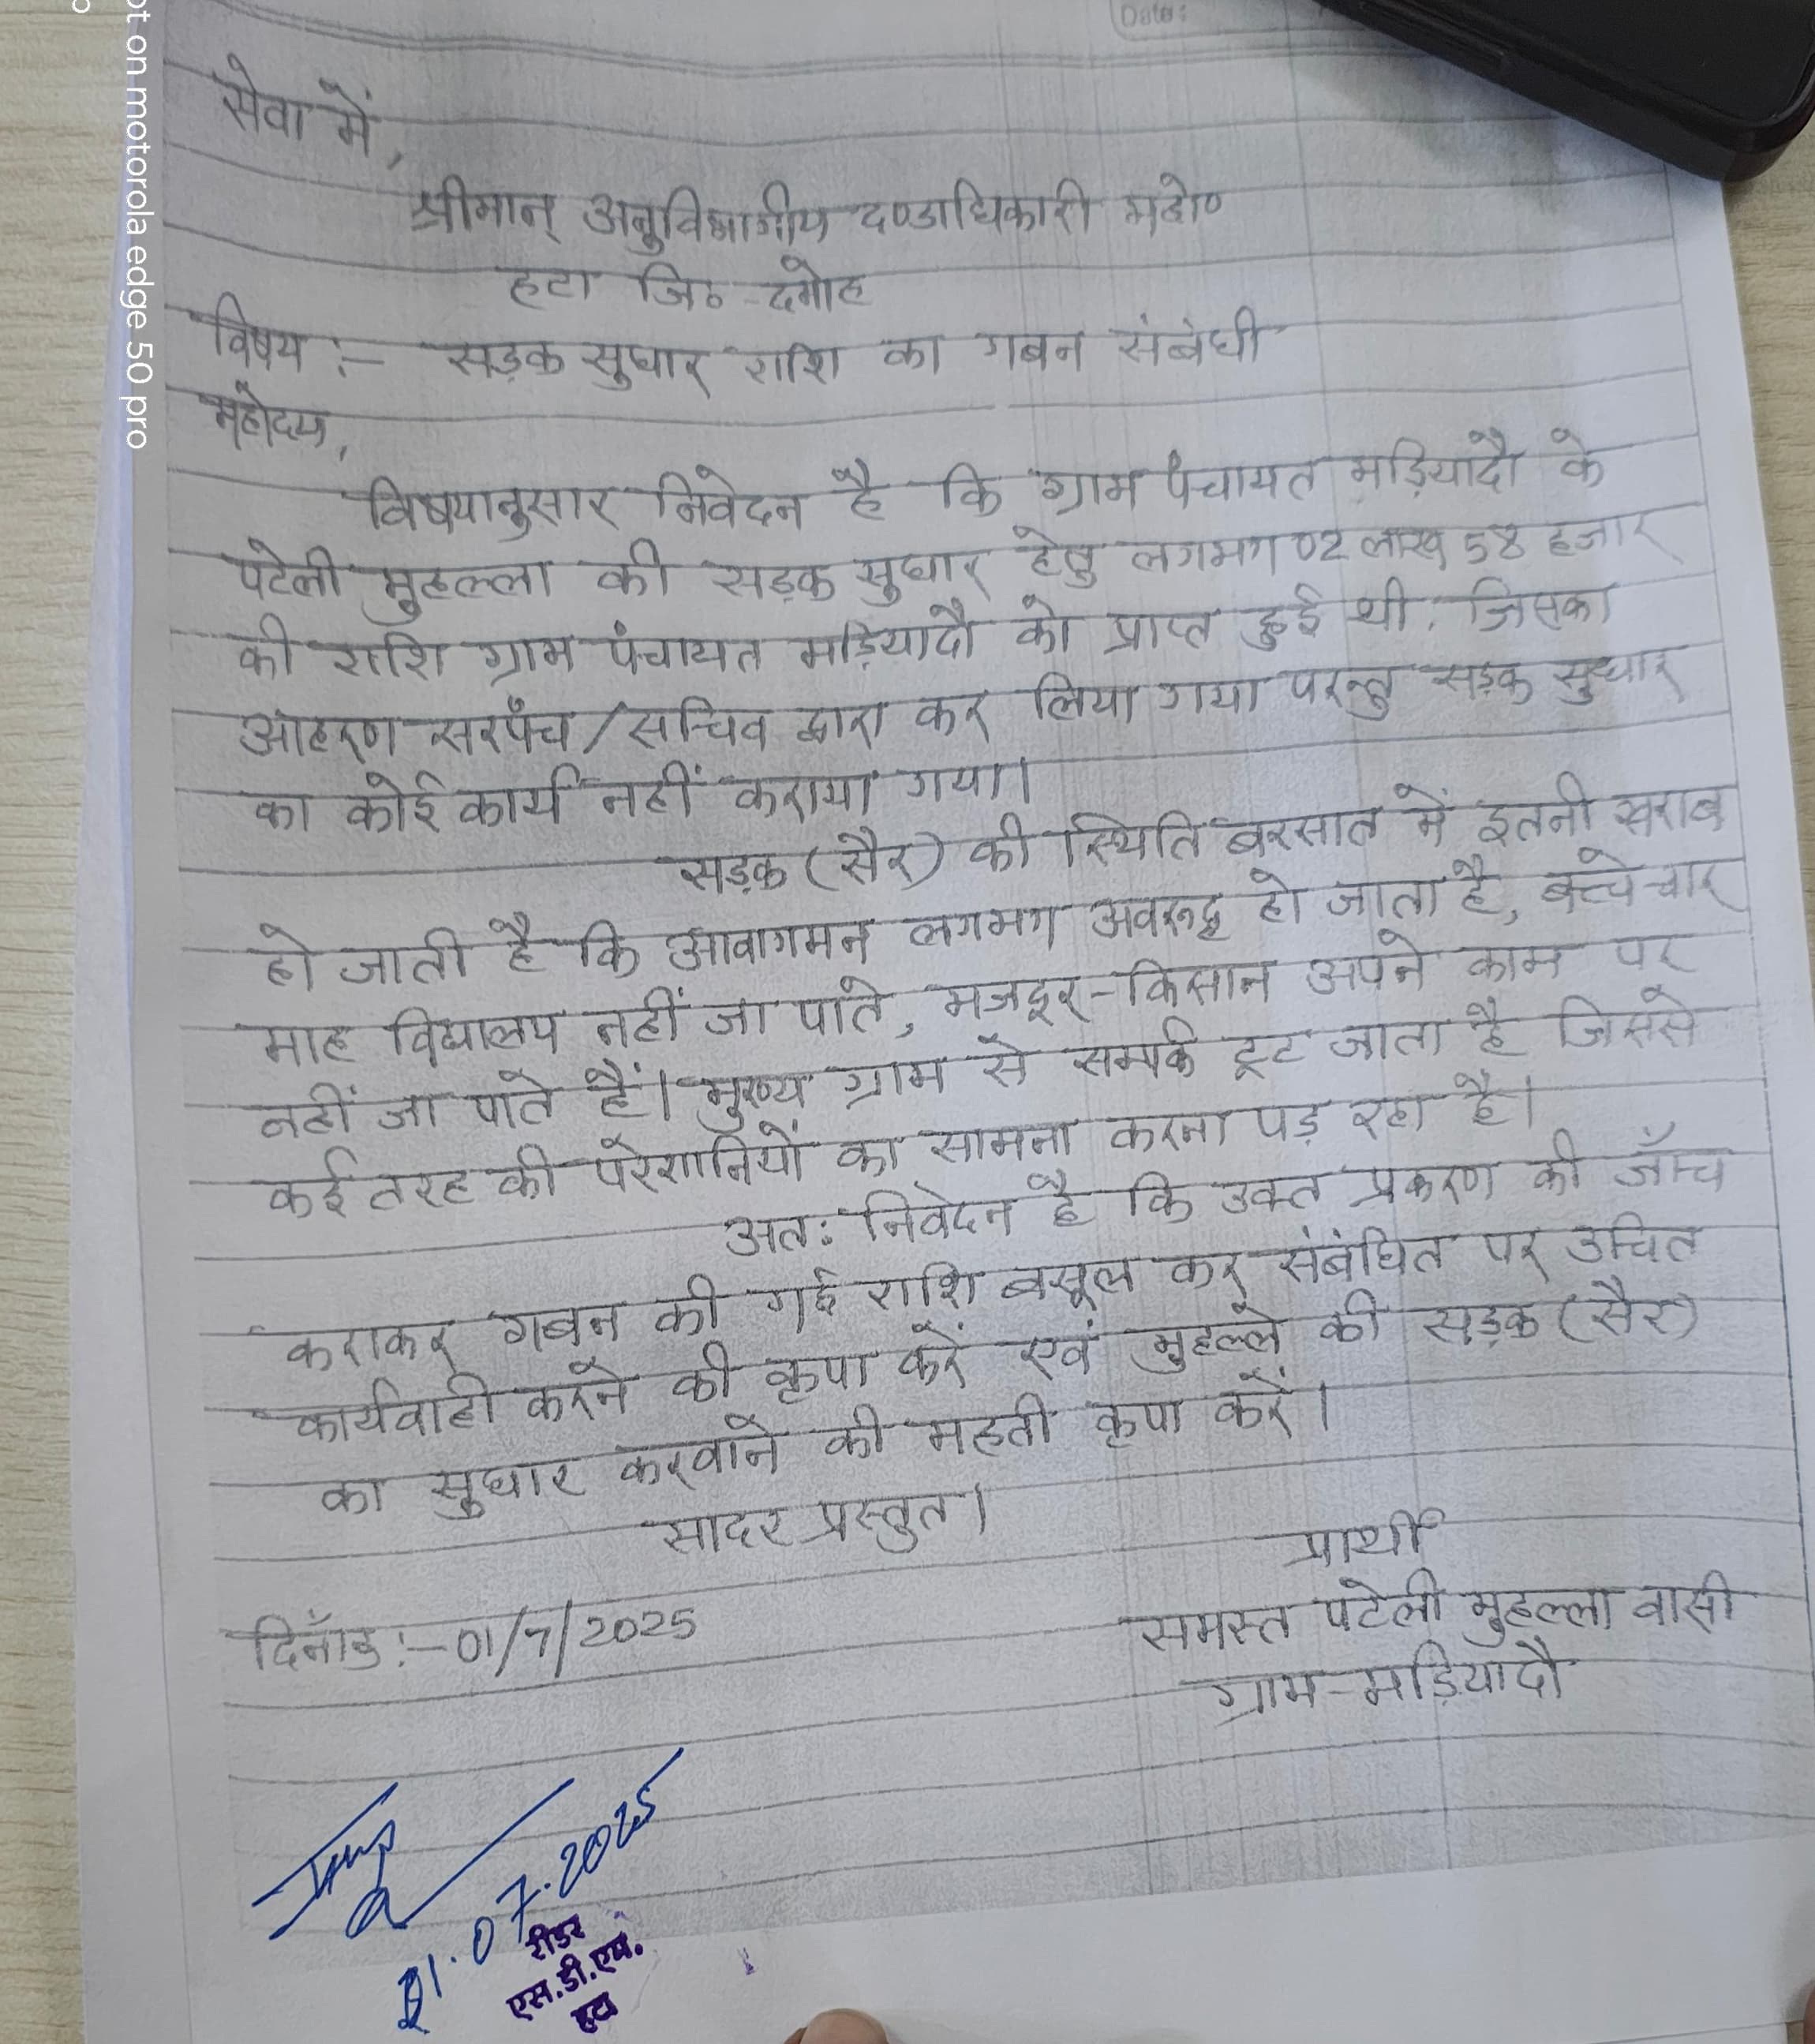 सेवा में,
श्रीमान् अनुविभागीय दण्डाधिकारी महो०
हटा जि०-दमोह
विषय :- सड़क सुधार राशि का गबन संबंधी
महोदय,
विषयानुसार निवेदन है कि ग्राम पंचायत मड़ियादौ के
पटेली मुहल्ला की सड़क सुधार हेतु लगभग 02 लाख 58 हजार
की राशि ग्राम पंचायत मड़ियादौ को प्राप्त हुई थी. जिसका
आहरण सरपंच/सचिव द्वारा कर लिया गया परन्तु सड़क सुधार
का कोई कार्य नहीं कराया गया।
सड़क (सैर) की स्थिति बरसात में इतनी खराब
हो जाती है कि आवागमन लगभग अवरूद्ध हो जाता है, बच्चे चार
माह विद्यालय नहीं जा पाते, मजदूर-किसान अपने काम पर
नहीं जा पाते हैं। मुख्य ग्राम से सम्पर्क टूट जाता है जिससे
कई तरह की परेशानियों का सामना करना पड़ रहा है।
अतः निवेदन है कि उक्त प्रकरण की जाँच
कराकर गबन की गई राशि बसूल कर संबंधित पर उचित
कार्यवाही करने की कृपा करें एवं मुहल्ले की सड़क (सैर)
का सुधार करवाने की महती कृपा करें।
सादर प्रस्तुत।
प्रार्थी
समस्त पटेली मुहल्ला वासी
ग्राम-मड़ियादौ
दिनाँक :- 01/7/2025
01.07.2025
रीडर
एस.डी.एम.
हटा
ot on motorola edge 50 pro